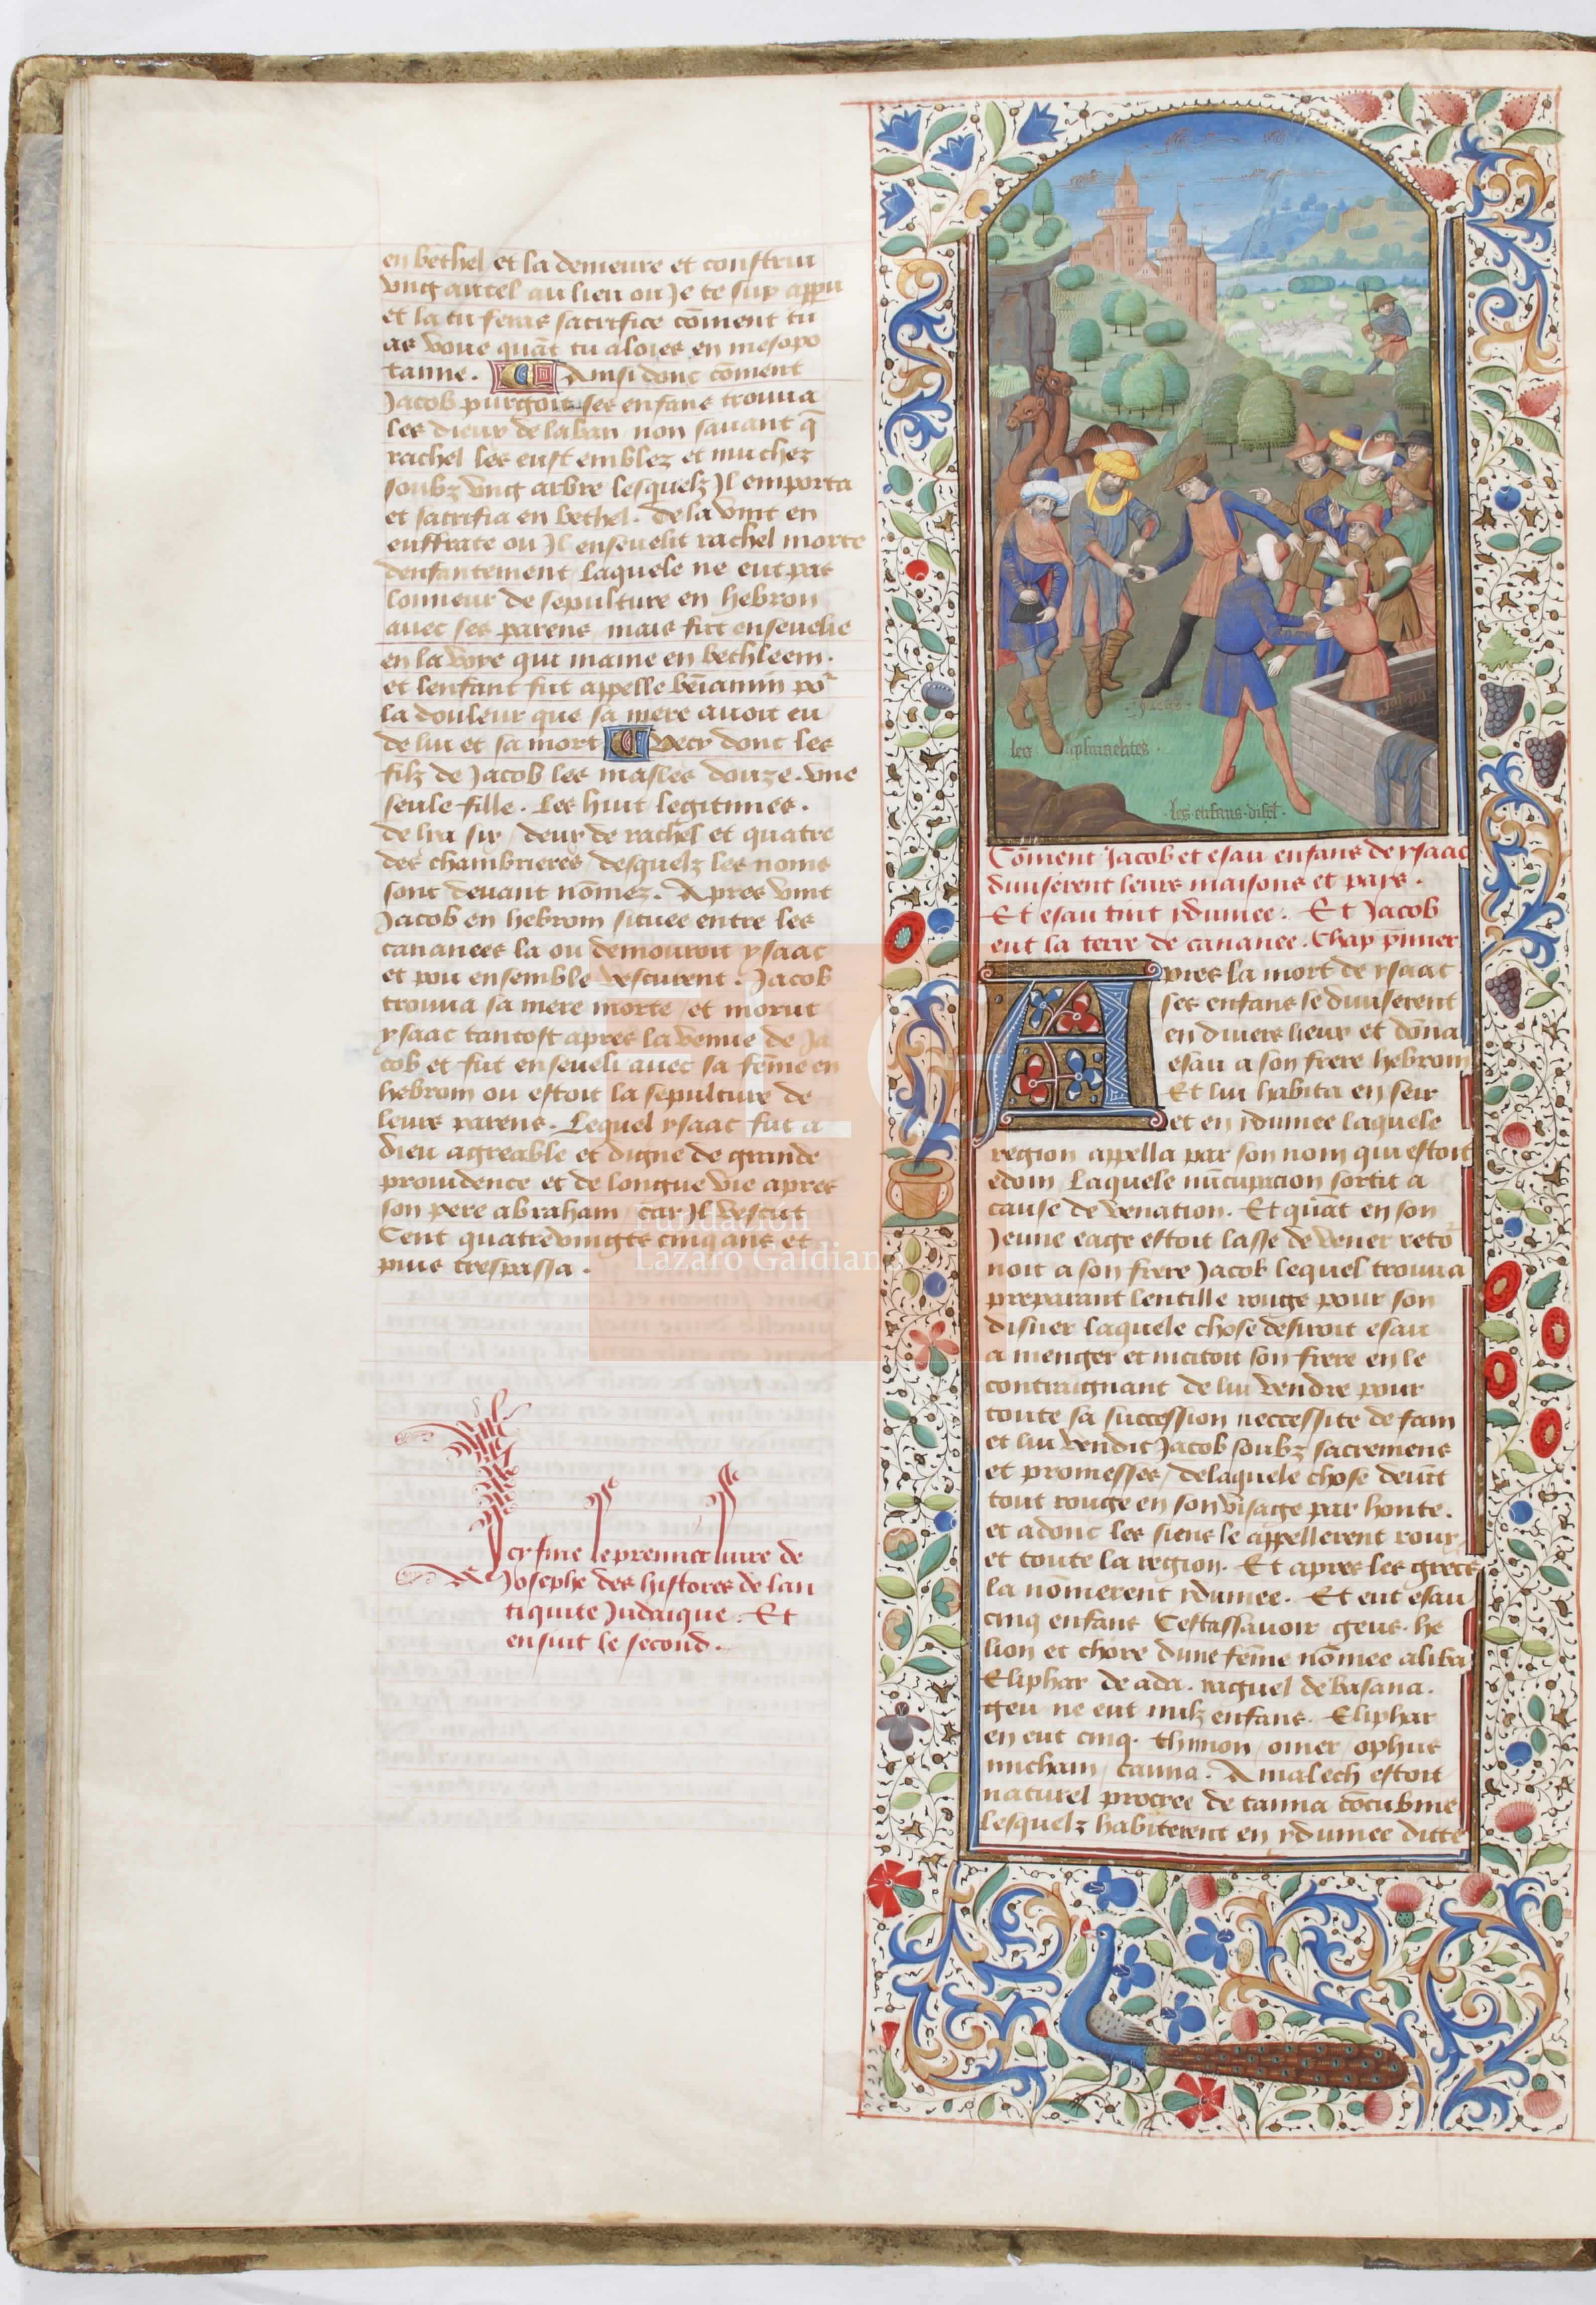 en bethel et la demeure et construi
vng autel au lieu ou Je te suy appu
et la tu feras sacrifice cõment tu
as voue quãt tu aloies en mesopo
tamie. Ainsi donc cõment
Jacob purgoit ses enfans trouua
les dieux de laban non sauant q̃
rachel les eust emblez et muchez
soubz vng arbre lesquelz Jl emporta
et sacrifia en bethel. de la vint en
euffrate ou Jl enseuelit rachel morte
denfantement laquele ne eut pas
lonneur de sepulture en hebron
auec ses parens mais fut enseuelie
en la voye qui maine en bethleem.
et lenfant fut appelle beniamin po᷑
la douleur que sa mere auoit eu
de lui et sa mort Vecy donc les
filz de Jacob les masles douze. vne
seule fille. Les huit legitimes.
de lya six deux de rachel et quatre
des chambrieres desquelz les noms
sont deuant nõmez. Apres vint
Jacob en hebrom situee entre les
cananees la ou demouroit ysaac
et pou ensemble vescurent. Jacob
trouua sa mere morte et morut
ysaac tantost apres la venue de Ja
cob et fut enseueli auec sa fẽme en
hebrom ou estoit la sepulture de
leurs parens. Lequel ysaac fut a
dieu agreable et digne de grande
prouidence et de longue vie apres
son pere abraham car Jl vescut
Cent quatrevingts cinq ans et
puis trespassa.
Cy fine le premier liure de
Josephe des histores de lan
tiquite Judaique. Et
ensuit le second.
les ysmaelites.
Les enfans disrl.
Cõment Jacob et esau enfans de ysaac
diuiserent leurs maisons et pais.
Et esau tint ydumee. Et Jacob
eut la terre de cananee. Chap p̃mier
Apres la mort de ysaac
ses enfans se diuiserent
en diuers lieux et dõna
esau a son frere hebrom
Et lui habita en seir
et en ydumee laquele
region appella par son nom qui estoit
edom Laquele nũcupacion sortit a
cause de venation. Et quãt en son
Jeune eage estoit lasse de vener reto᷑
noit a son frere Jacob lequel trouua
preparant lentille rouge pour son
disner laquele chose desiroit esau
a menger et incitoit son frere en le
contraignant de lui vendre pour
toute sa succession neccessite de faim
et lui vendit Jacob soubz sacremens
et promesses delaquele chose deuĩt
tout rouge en son visage par honte.
et adonc les siens le appellerent roux
et toute la region. Et apres les grecs
la nõmerent ydumee. Et eut esau
cinq enfans Cestassauoir geus. he
lion et chore dune fẽme nõmee aliba
Eliphar de ada. raguel de basana.
geu ne eut nulz enfans. Eliphar
en eut cinq. thimon omer ophus
iuicham canna. Amalech estoit
naturel procree de tanna cõcubine
lesquelz habiterent en ydumee ditte
Fundación
Lázaro Galdiano